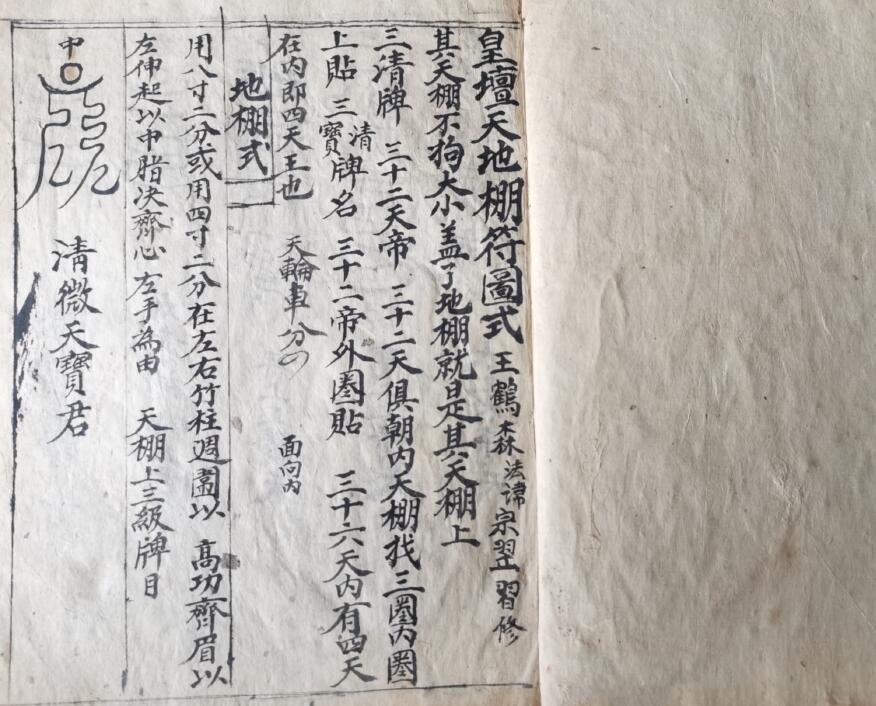 皇壇天地棚符圖式 王鶴森法諱宗翌習修
其天棚不狗大小盖了地棚就是其天棚上
三清牌 三十二天帝 三十二天俱朝内天棚找三圈内圈
上貼 三清寶牌名 三十二帝外圈貼 三十六天内有四天
在内即四天王也 天輪車分 面向内
地棚式
用八寸二分或用四寸二分在左右竹柱週圍以 高功齊眉以
左伸起以中腊决齊心左手為由 天棚上三級牌目
中
清微天寶君